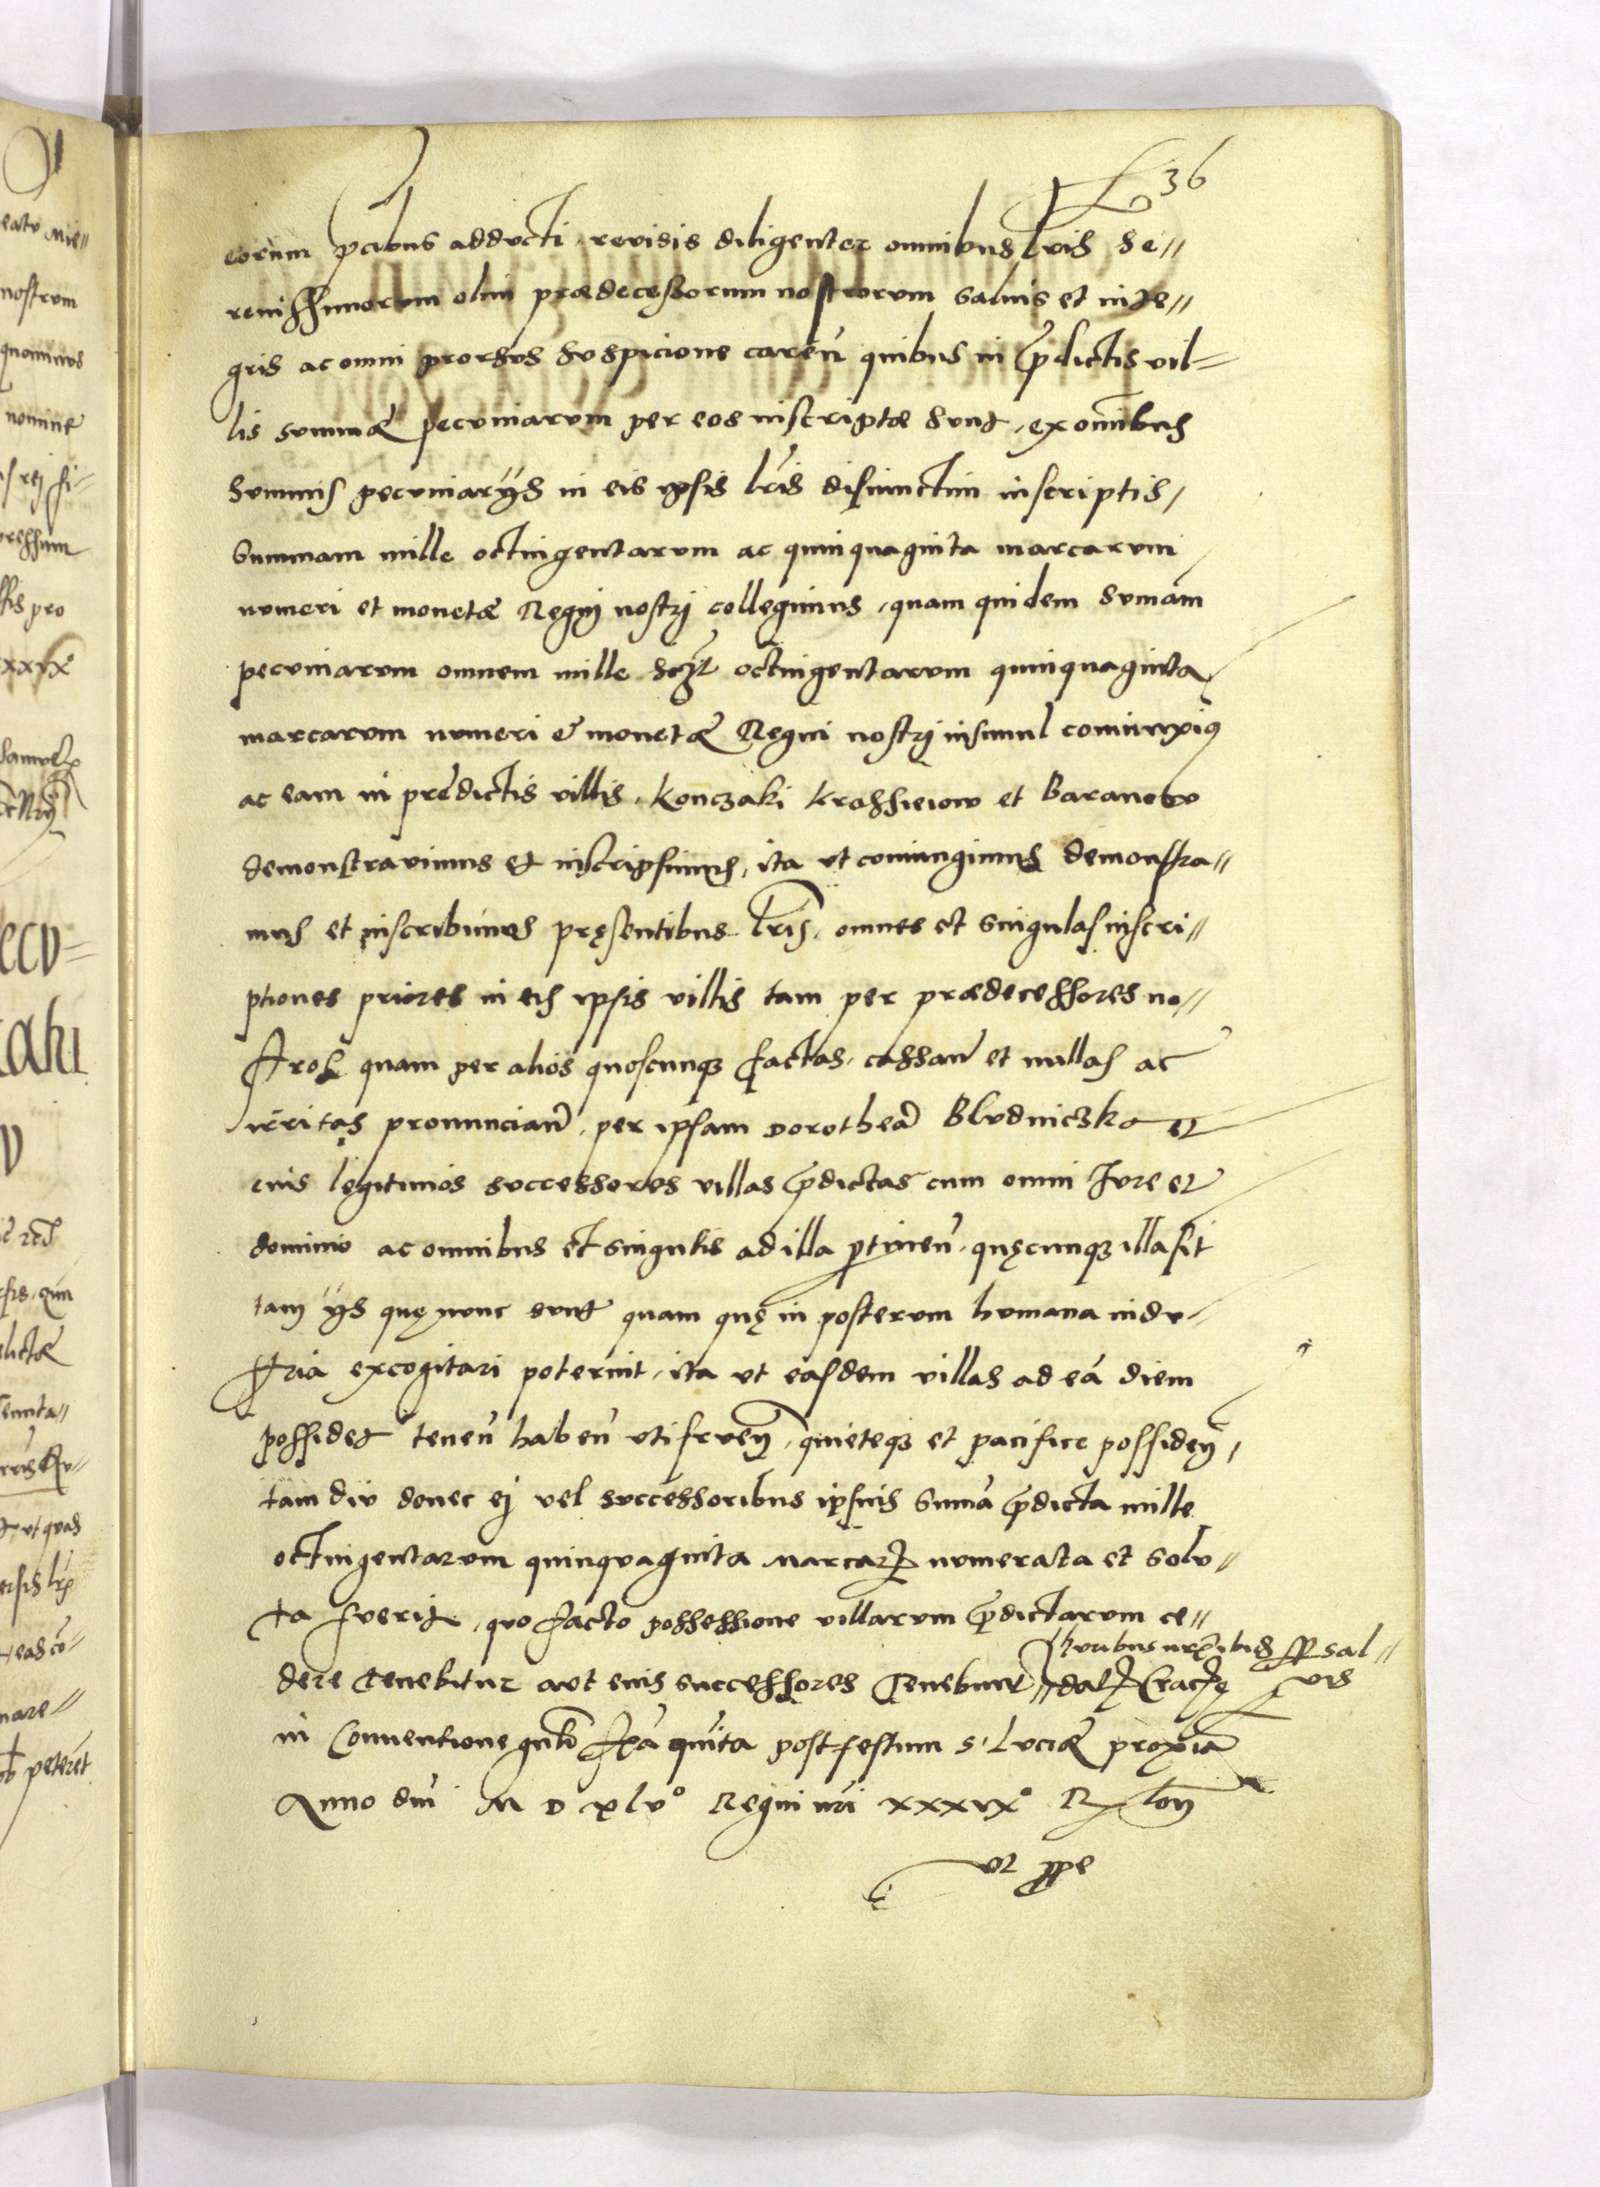 36
eorum pcibus adducti, reuisis diligenter omnibus lris Se=
renissimorum olim prædecessorum nostrorum saluis et inte=
gris ac omni prorsus suspicione careñ quibus in pdictis vil=
lis summæ pecuniarum per eos inscriptæ sunt, ex omnibus
summis pecuniarys in eis ipsis lris disiunctim inscriptis,
Summam mille octingentarum ac quinquaginta marcarum
numeri et monetæ Regni nostrj collegimus, quam quidem sumam
pecuniarum omnem mille sczt octingentarum quinquaginta
marcarum numeri & monetæ Regni nostrj insimul coniunximus
ac eam in predictis villis, Konczaki Krassieiow et Baranow
demonstrauimus et inscripsimus, ita vt coniungimus demonstra=
mus et inscribimus pręsentibus lris, omnes et singulas inscri=
ptiones priores in eis ipsis villis tam per prædecessores no=
stros quam per alios quoscunque factas, cassañ et nullas ac
irritas pronunciañ, per ipsam Dorotheã Bludniczka et
eius legitimos successores villas pdictas cum omni Iure et
dominio ac omnibus et singulis ad illa ptineñ, quęcunque illa sit
tam ys quę nunc sunt quam quę in posterum humana indu=
stria excogitari poterint, ita vt easdem villas ad eã diem
possidet teneñ habeñ vtifrueñ, quieteque et pacifice possideñ,
tam diu donec ej vel successoribus ipsius Sumã pdicta mille
octingentarum quinquaginta marcar numerata et solu=
ta fuerit, quo facto possessione villarum pdictarum ce=
dere tenebitur aut eius successores tenebunt Iuribus nris ibid sal=
uis
dat Crac
in Conuentione gnli fria quinta post festum S. Luciæ proxima
Anno dni M D xlv° Regni nri xxxix°
vt